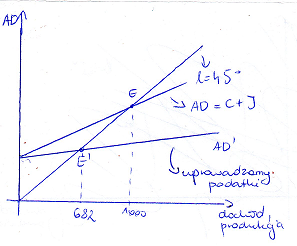 AD
l=45°
E
AD = C+I
E'
AD'
wprowadzamy
podatki
682
1000
dochód,
produkcja